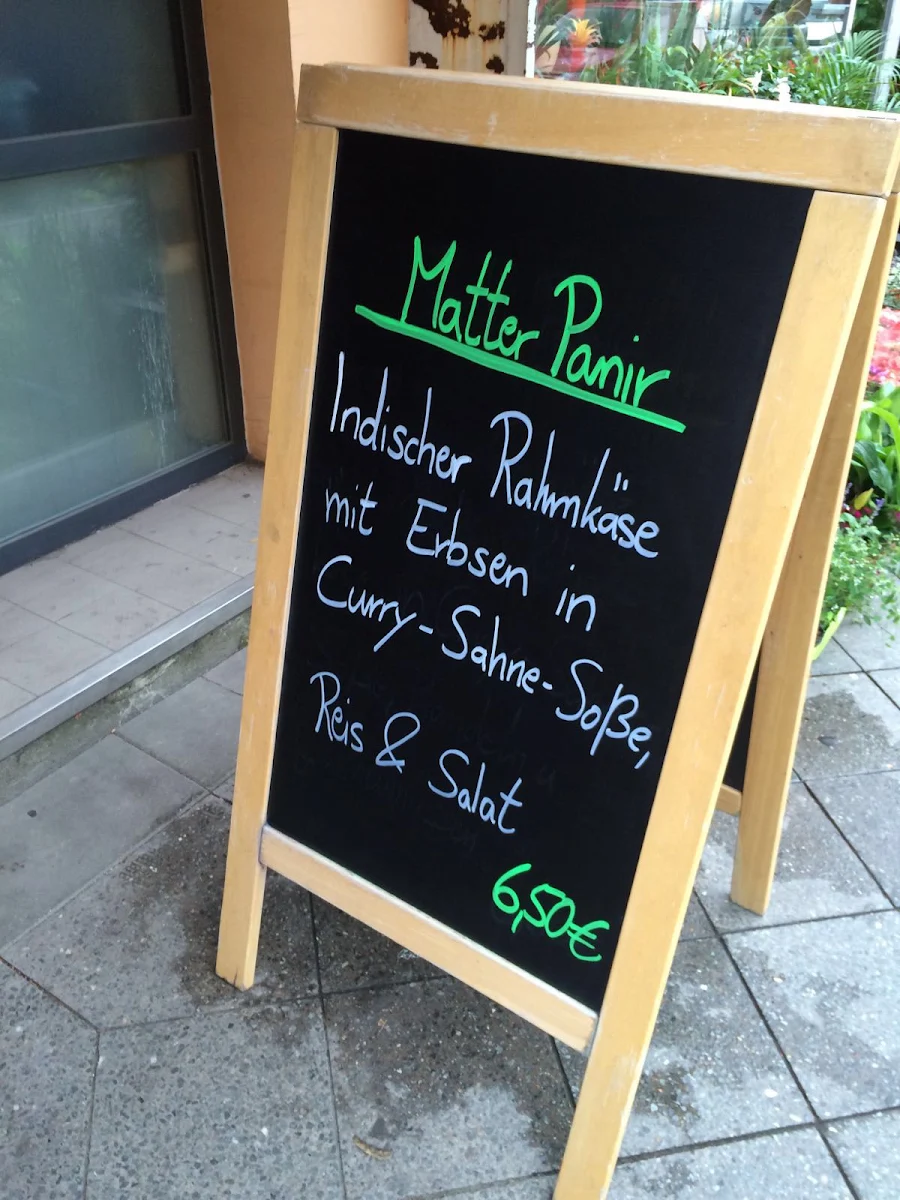 Matter Panir
Indischer Rahmkäse
mit Erbsen in
Curry-Sahne-Soße,
Reis & Salat
6,50€